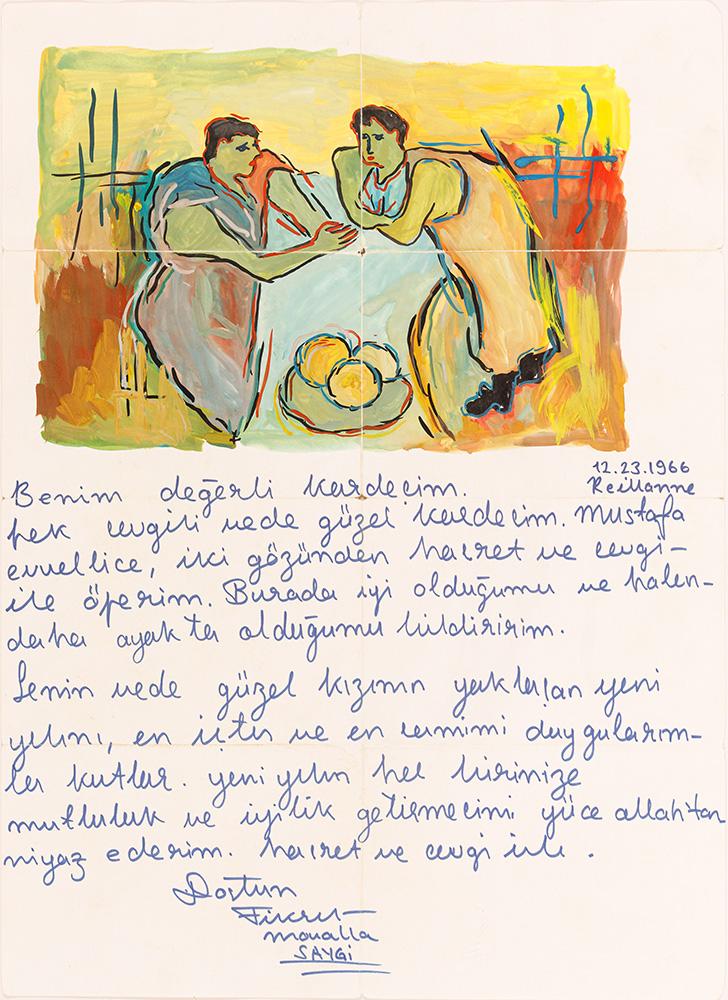 12.23.1966
Reillanne
Benim değerli kardeşim.
pek sevgili vede güzel kardeşim. Mustafa
evvellice, iki gözünden hasret ve sevgi-
ile öperim. Burada iyi olduğumu ve halen-
daha ayakta olduğumu bildiririm.
Senin vede güzel kızının yaklaşan yeni
yılını, en içten ve en samimi duygularım-
la kutlar. yeni yılın her birinize
mutluluk ve iyilik getirmesini yüce allahtan
niyaz ederim. hasret ve sevgi ile.
Dostun
Fikret
Moualla
SAYGI